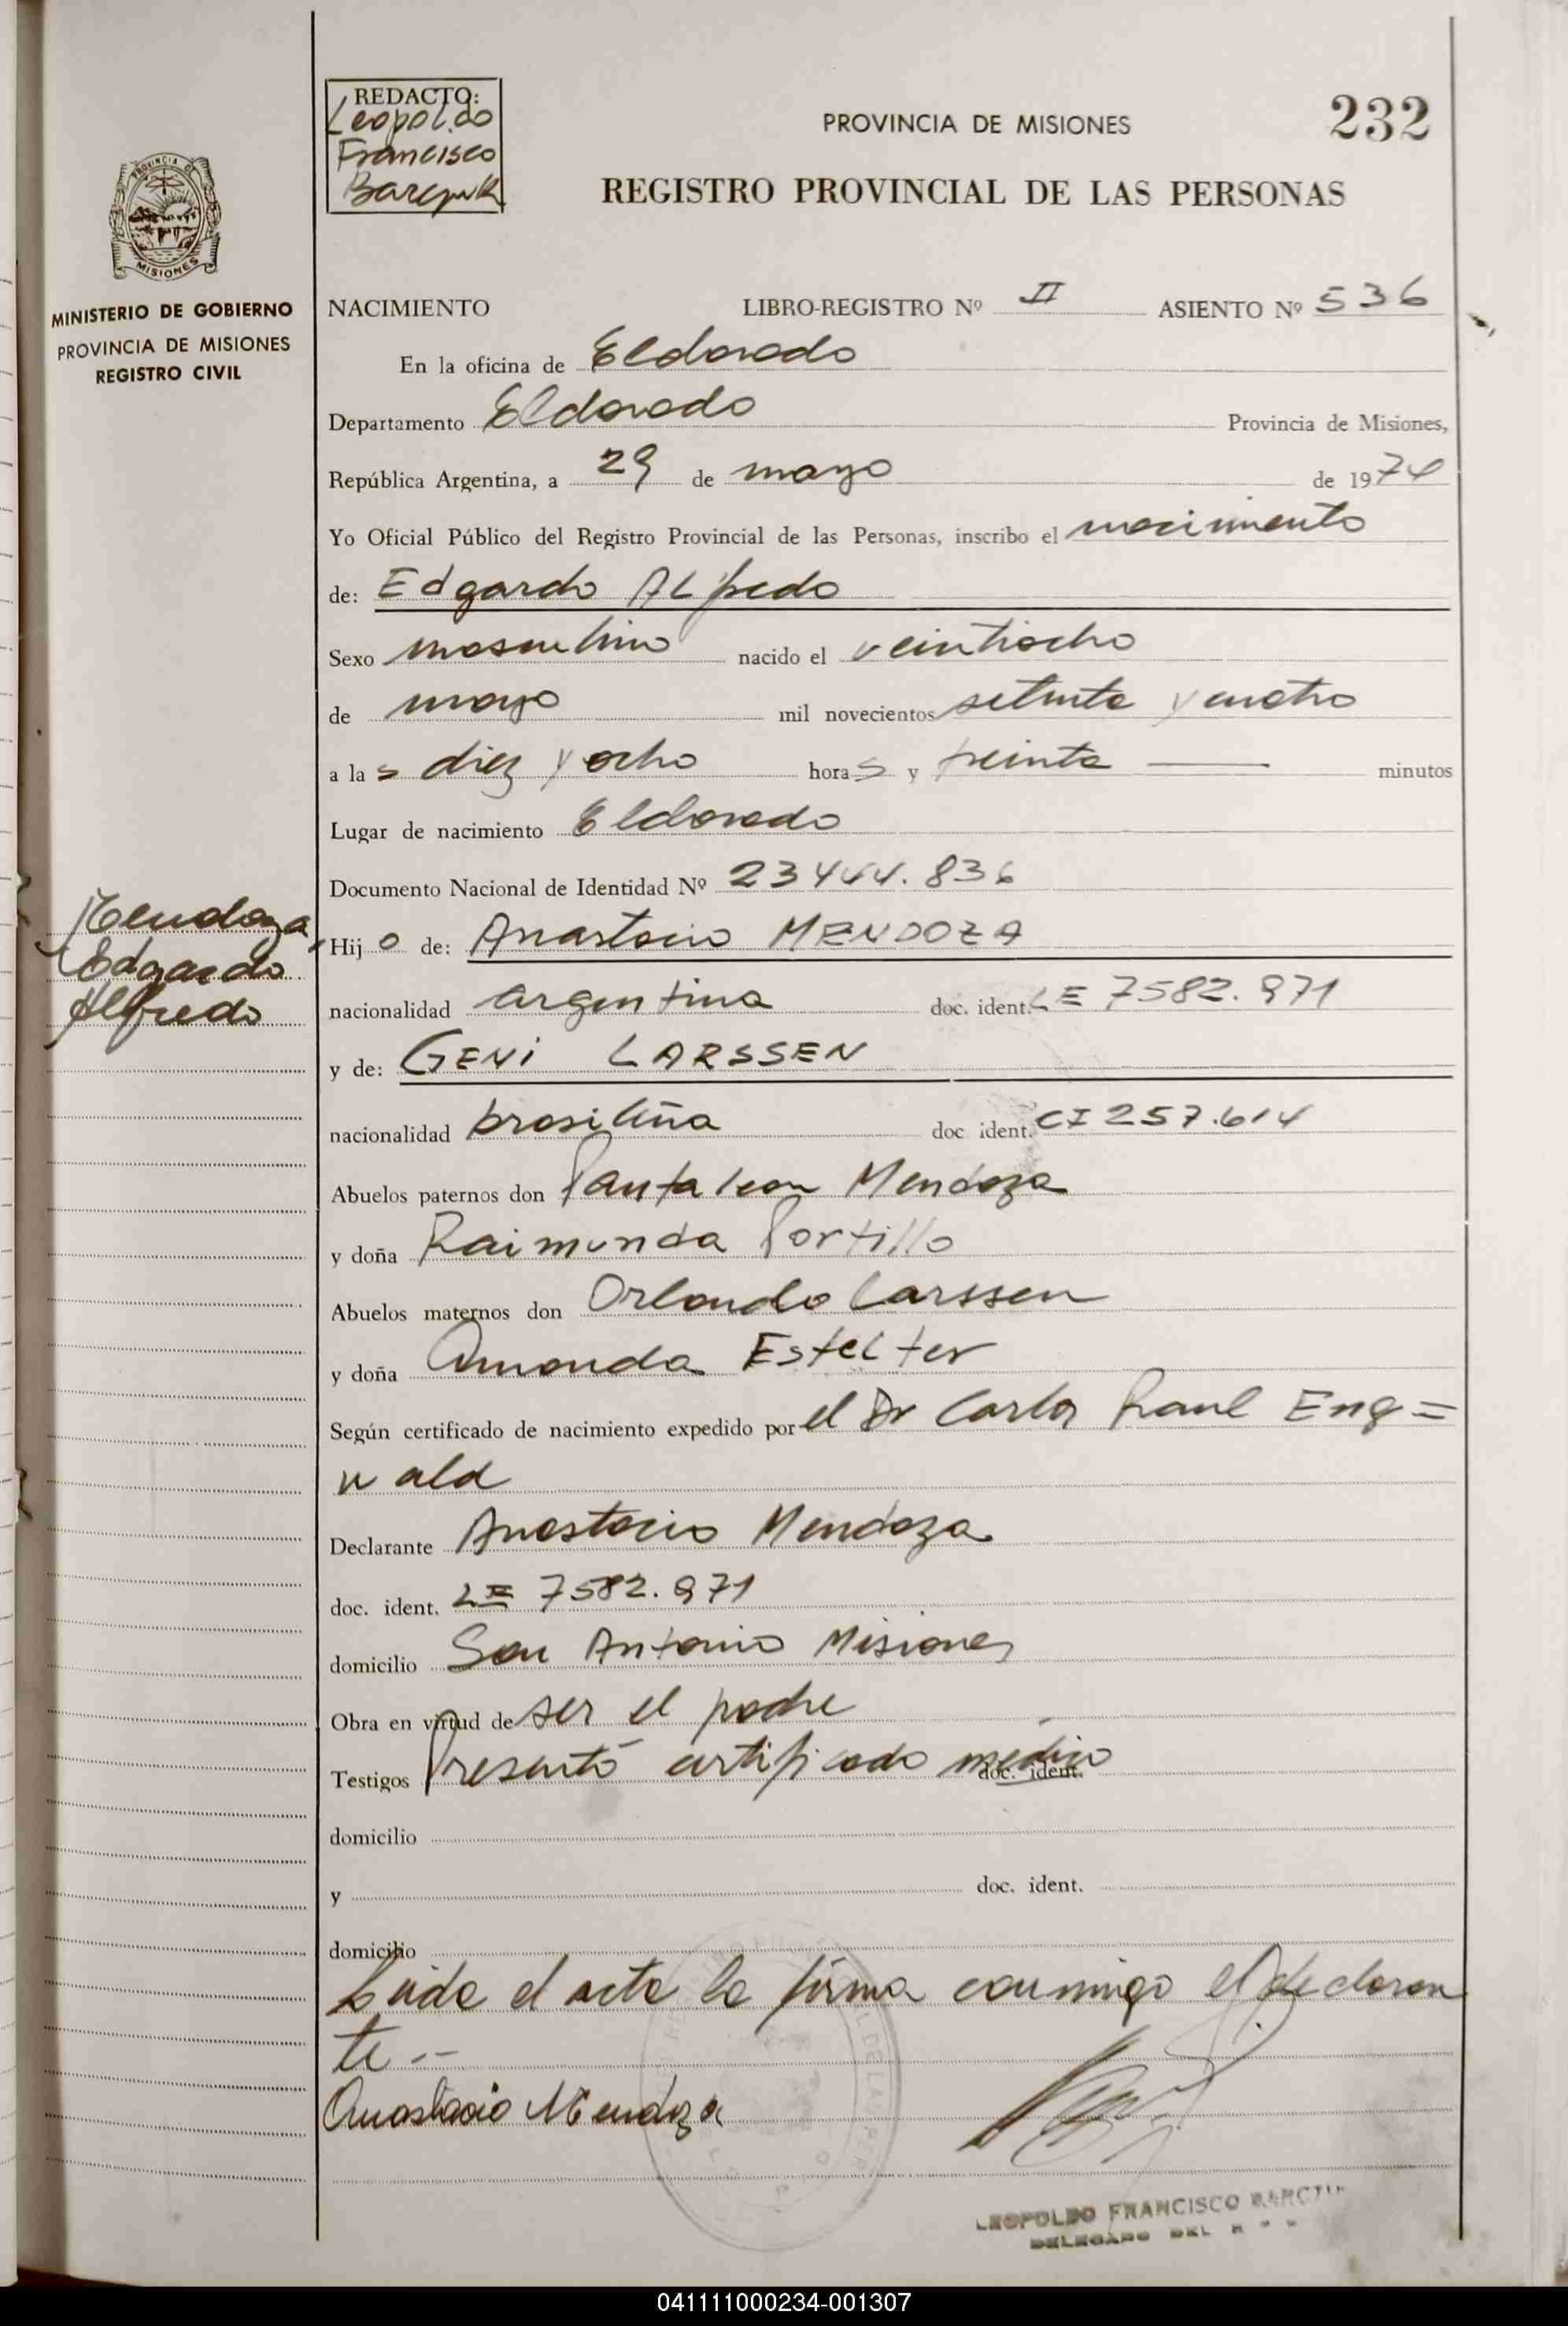 REDACTO:
Leopoldo
Francisco
PROVINCIA DE MISIONES
232
REGISTRO PROVINCIAL DE LAS PERSONAS
PROVINCIA DE
MISIONES
MINISTERIO DE GOBIERNO
PROVINCIA DE MISIONES
REGISTRO CIVIL
NACIMIENTO LIBRO-REGISTRO Nº II ASIENTO Nº 536
En la oficina de Eldorado
Departamento Eldorado Provincia de Misiones,
República Argentina, a 29 de mayo de 1974
Yo Oficial Público del Registro Provincial de las Personas, inscribo el nacimiento
de: Edgardo ALfredo
Sexo masculino nacido el veintiocho
de mayo mil novecientos setenta y cuatro
a las diez y ocho horas y treinta — minutos
Lugar de nacimiento Eldorado
Documento Nacional de Identidad Nº 23444.836
Mendoza,
Edgardo
Alfredo
Hijo de: Anastacio MENDOZA
nacionalidad argentina doc. ident. LE 7582.971
y de: GENI LARSSEN
nacionalidad brasileña doc ident. CI 257.614
Abuelos paternos don Pantaleon Mendoza
y doña Raimunda Portillo
Abuelos maternos don Orlando Larssen
y doña Amanda Estelter
Según certificado de nacimiento expedido por el Dr Carlos Raul Eng=
wald
Declarante Anastacio Mendoza
doc. ident. LE 7582.971
domicilio San Antonio Misiones
Obra en virtud de ser el padre
Testigos Presentó certificado medico doc. ident.
domicilio
y doc. ident.
domicilio
Leida el acta la firma conmigo el declaran
te.--
Anastacio Mendoza
LEOPOLDO FRANCISCO
DELEGADO DEL
041111000234-001307